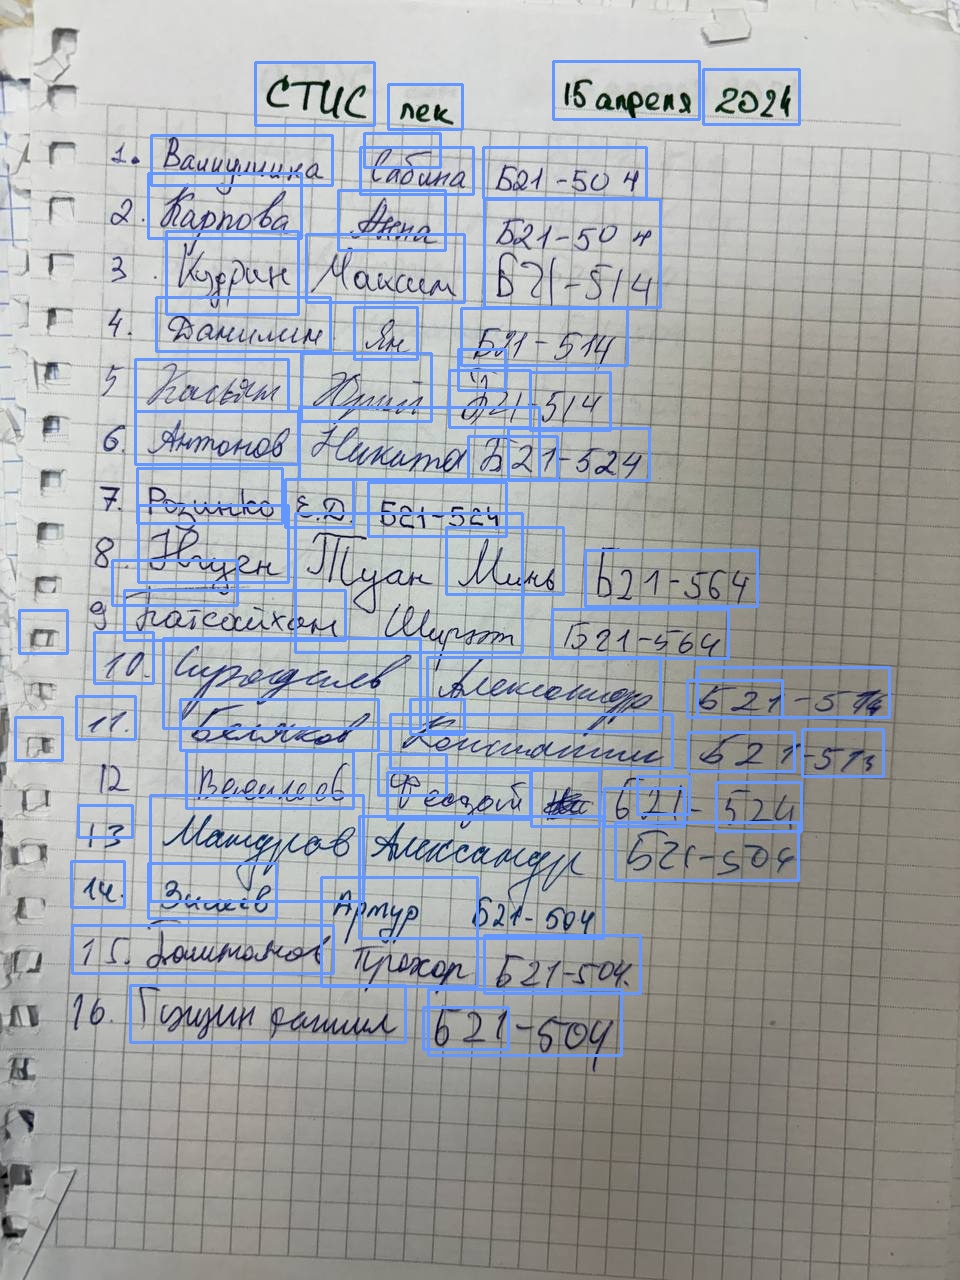 СТИС лек 15 апреля 2024
1. Сабина Б21-504
2. Карпова Анна Б21-504
3. Кудрин Максим Б21-514
4. Данилин Ян Б21-514
5 Касьян Юрий Б21-514
6. Антонов Никита Б21-524
7. Розинко Е.Д. Б21-524
8. Нгуен Туан Минь Б21-564
9 Шижэт Б21-564
10. Александр Б21-514
11. Беляков Константин Б21-513
12 Васильев Феодор Б21-524
13 Александр Б21-504
14. Артур Б21-504
15. Прохор Б21-504.
16. Б21-504